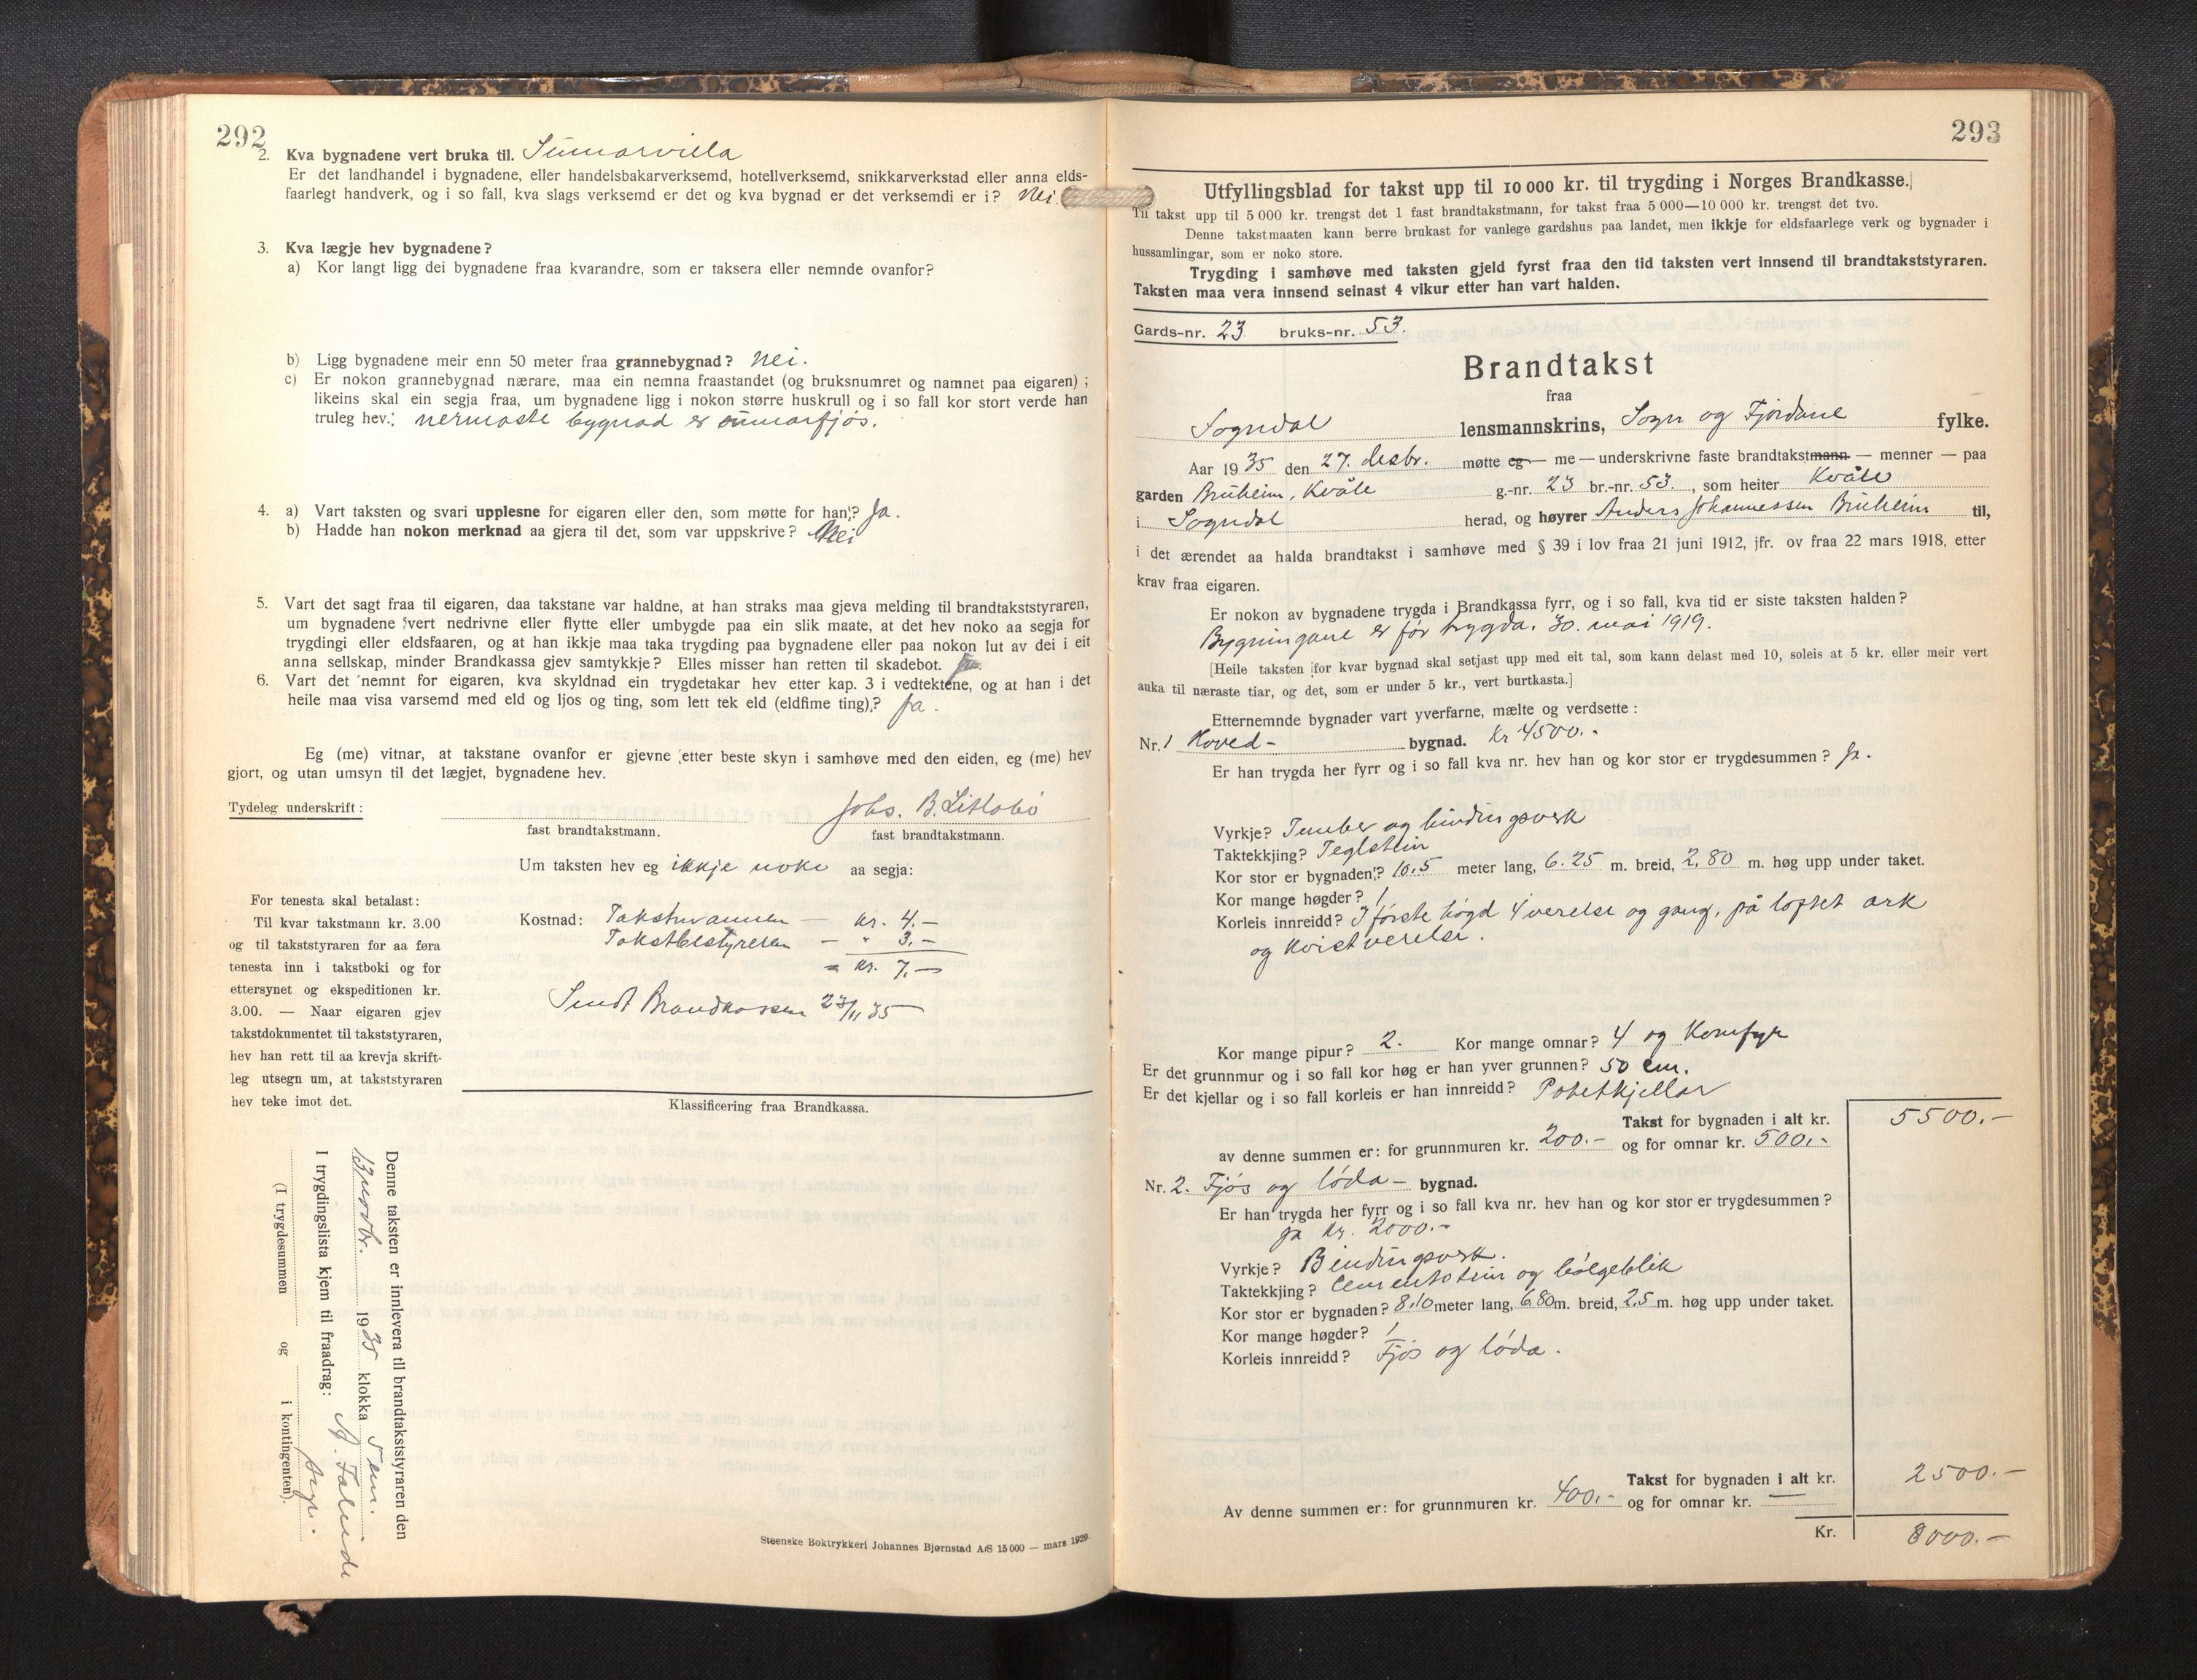 292
2. Kva bygnadene vert bruka til. Sumarvilla
Er det landhandel i bygnadene, eller handelsbakarverksemd, hotellverksemd, snikkarverkstad eller anna elds-
faarlegt handverk, og i so fall, kva slags verksemd er det og kva bygnad er det verksemdi er i? Nei.
3. Kva lægje hev bygnadene?
a) Kor langt ligg dei bygnadene fraa kvarandre, som er taksera eller nemnde ovanfor?
b) Ligg bygnadene meir enn 50 meter fraa grannebygnad? Nei.
c) Er nokon grannebygnad nærare, maa ein nemna fraastandet (og bruksnumret og namnet paa eigaren);
likeins skal ein segja fraa, um bygnadene ligg i nokon større huskrull og i so fall kor stort verde han
truleg hev.: nermaste bygnad er sumarfjøs.
4. a) Vart taksten og svari upplesne for eigaren eller den, som møtte for han? Ja.
b) Hadde han nokon merknad aa gjera til det, som var uppskrive? Nei
5. Vart det sagt fraa til eigaren, daa takstane var haldne, at han straks maa gjeva melding til brandtakststyraren,
um bygnadene vert nedrivne eller flytte eller umbygde paa ein slik maate, at det hev noko aa segja for
trygdingi eller eldsfaaren, og at han ikkje maa taka trygding paa bygnadene eller paa nokon lut av dei i eit
anna sellskap, minder Brandkassa gjev samtykkje? Elles misser han retten til skadebot. Ja.
6. Vart det nemnt for eigaren, kva skyldnad ein trygdetakar hev etter kap. 3 i vedtektene, og at han i det
heile maa visa varsemd med eld og ljos og ting, som lett tek eld (eldfime ting)? Ja.
Eg (me) vitnar, at takstane ovanfor er gjevne etter beste skyn i samhøve med den eiden, eg (me) hev
gjort, og utan umsyn til det lægjet, bygnadene hev.
Tydeleg underskrift: Johs. B. Litlabø
fast brandtakstmann. fast brandtakstmann.
Um taksten hev eg ikkje noko aa segja:
For tenesta skal betalast:
Til kvar takstmann kr. 3.00
og til takststyraren for aa føra
tenesta inn i takstboki og for
ettersynet og ekspeditionen kr.
3.00. — Naar eigaren gjev
takstdokumentet til takststyraren,
hev han rett til aa krevja skrift-
leg utsegn um, at takststyraren
hev teke imot det.
Kostnad: Takstmannen — kr. 4.-
Takstbestyreren — " 3.-
= kr. 7.-
Sendt Brandkassen 23/11 35
Klassificering fraa Brandkassa.
Denne taksten er innlevera til brandtakststyraren den
13 novbr. 1935 klokka 5 em.
I trygdingslista kjem til fraadrag:
(I trygdesummen og i kontingenten).
Steenske Boktrykkeri Johannes Bjørnstad A/S 15 000 — mars 1929.
293
Utfyllingsblad for takst upp til 10 000 kr. til trygding i Norges Brandkasse.
Til takst upp til 5 000 kr. trengst det 1 fast brandtakstmann, for takst fraa 5 000—10 000 kr. trengst det tvo.
Denne takstmaaten kann berre brukast for vanlege gardshus paa landet, men ikkje for eldsfaarlege verk og bygnader i
hussamlingar, som er noko store.
Trygding i samhøve med taksten gjeld fyrst fraa den tid taksten vert innsend til brandtakststyraren.
Taksten maa vera innsend seinast 4 vikur etter han vart halden.
Gards-nr. 23 bruks-nr. 53.
Brandtakst
fraa
Sogndal lensmannskrins, Sogn og Fjordane fylke.
Aar 1935 den 27. desbr. møtte eg — me — underskrivne faste brandtakstmann — menner — paa
garden Bruheim, Kvåle g.-nr. 23 br.-nr. 53., som heiter Kvåle
i Sogndal herad, og høyrer Anders Johannessen Bruheim til,
i det ærendet aa halda brandtakst i samhøve med § 39 i lov fraa 21 juni 1912, jfr. ov fraa 22 mars 1918, etter
krav fraa eigaren.
Er nokon av bygnadene trygda i Brandkassa fyrr, og i so fall, kva tid er siste taksten halden?
Bygningane er før trygda. 30. mai 1919.
[Heile taksten for kvar bygnad skal setjast upp med eit tal, som kann delast med 10, soleis at 5 kr. eller meir vert
auka til næraste tiar, og det, som er under 5 kr., vert burtkasta.]
Etternemnde bygnader vart yverfarne, mælte og verdsette:
Nr. 1 Hoved- bygnad. Kr 4500.-
Er han trygda her fyrr og i so fall kva nr. hev han og kor stor er trygdesummen? Ja.
Vyrkje? Tømber og bindingsverk
Taktekkjing? Teglstein
Kor stor er bygnaden? 10.5 meter lang, 6.25 m. breid, 2.80 m. høg upp under taket.
Kor mange høgder? 1
Korleis innreidd? I første høgd 4 verelse og gang, på loftet ark
og kvistverelse.
Kor mange pipur? 2. Kor mange omnar? 4 og Komfyr
Er det grunnmur og i so fall kor høg er han yver grunnen? 50 cm.
Er det kjellar og i so fall korleis er han innreidd? Potetkjellar
Takst for bygnaden i alt kr. 5500.-
av denne summen er: for grunnmuren kr. 200.- og for omnar kr. 500.-
Nr. 2. Fjøs og løda- bygnad.
Er han trygda her fyrr og i so fall kva nr. hev han og kor stor er trygdesummen?
Ja kr. 2000.-
Vyrkje? Bindingsverk.
Taktekkjing? Cementstein og bølgeblik
Kor stor er bygnaden? 8.10 meter lang, 6.80 m. breid, 2.5 m. høg upp under taket.
Kor mange høgder? 1
Korleis innreidd? Fjøs og løda.
Takst for bygnaden i alt kr. 2500.-
Av denne summen er: for grunnmuren kr. 400.- og for omnar kr. —
Kr. 8000.-